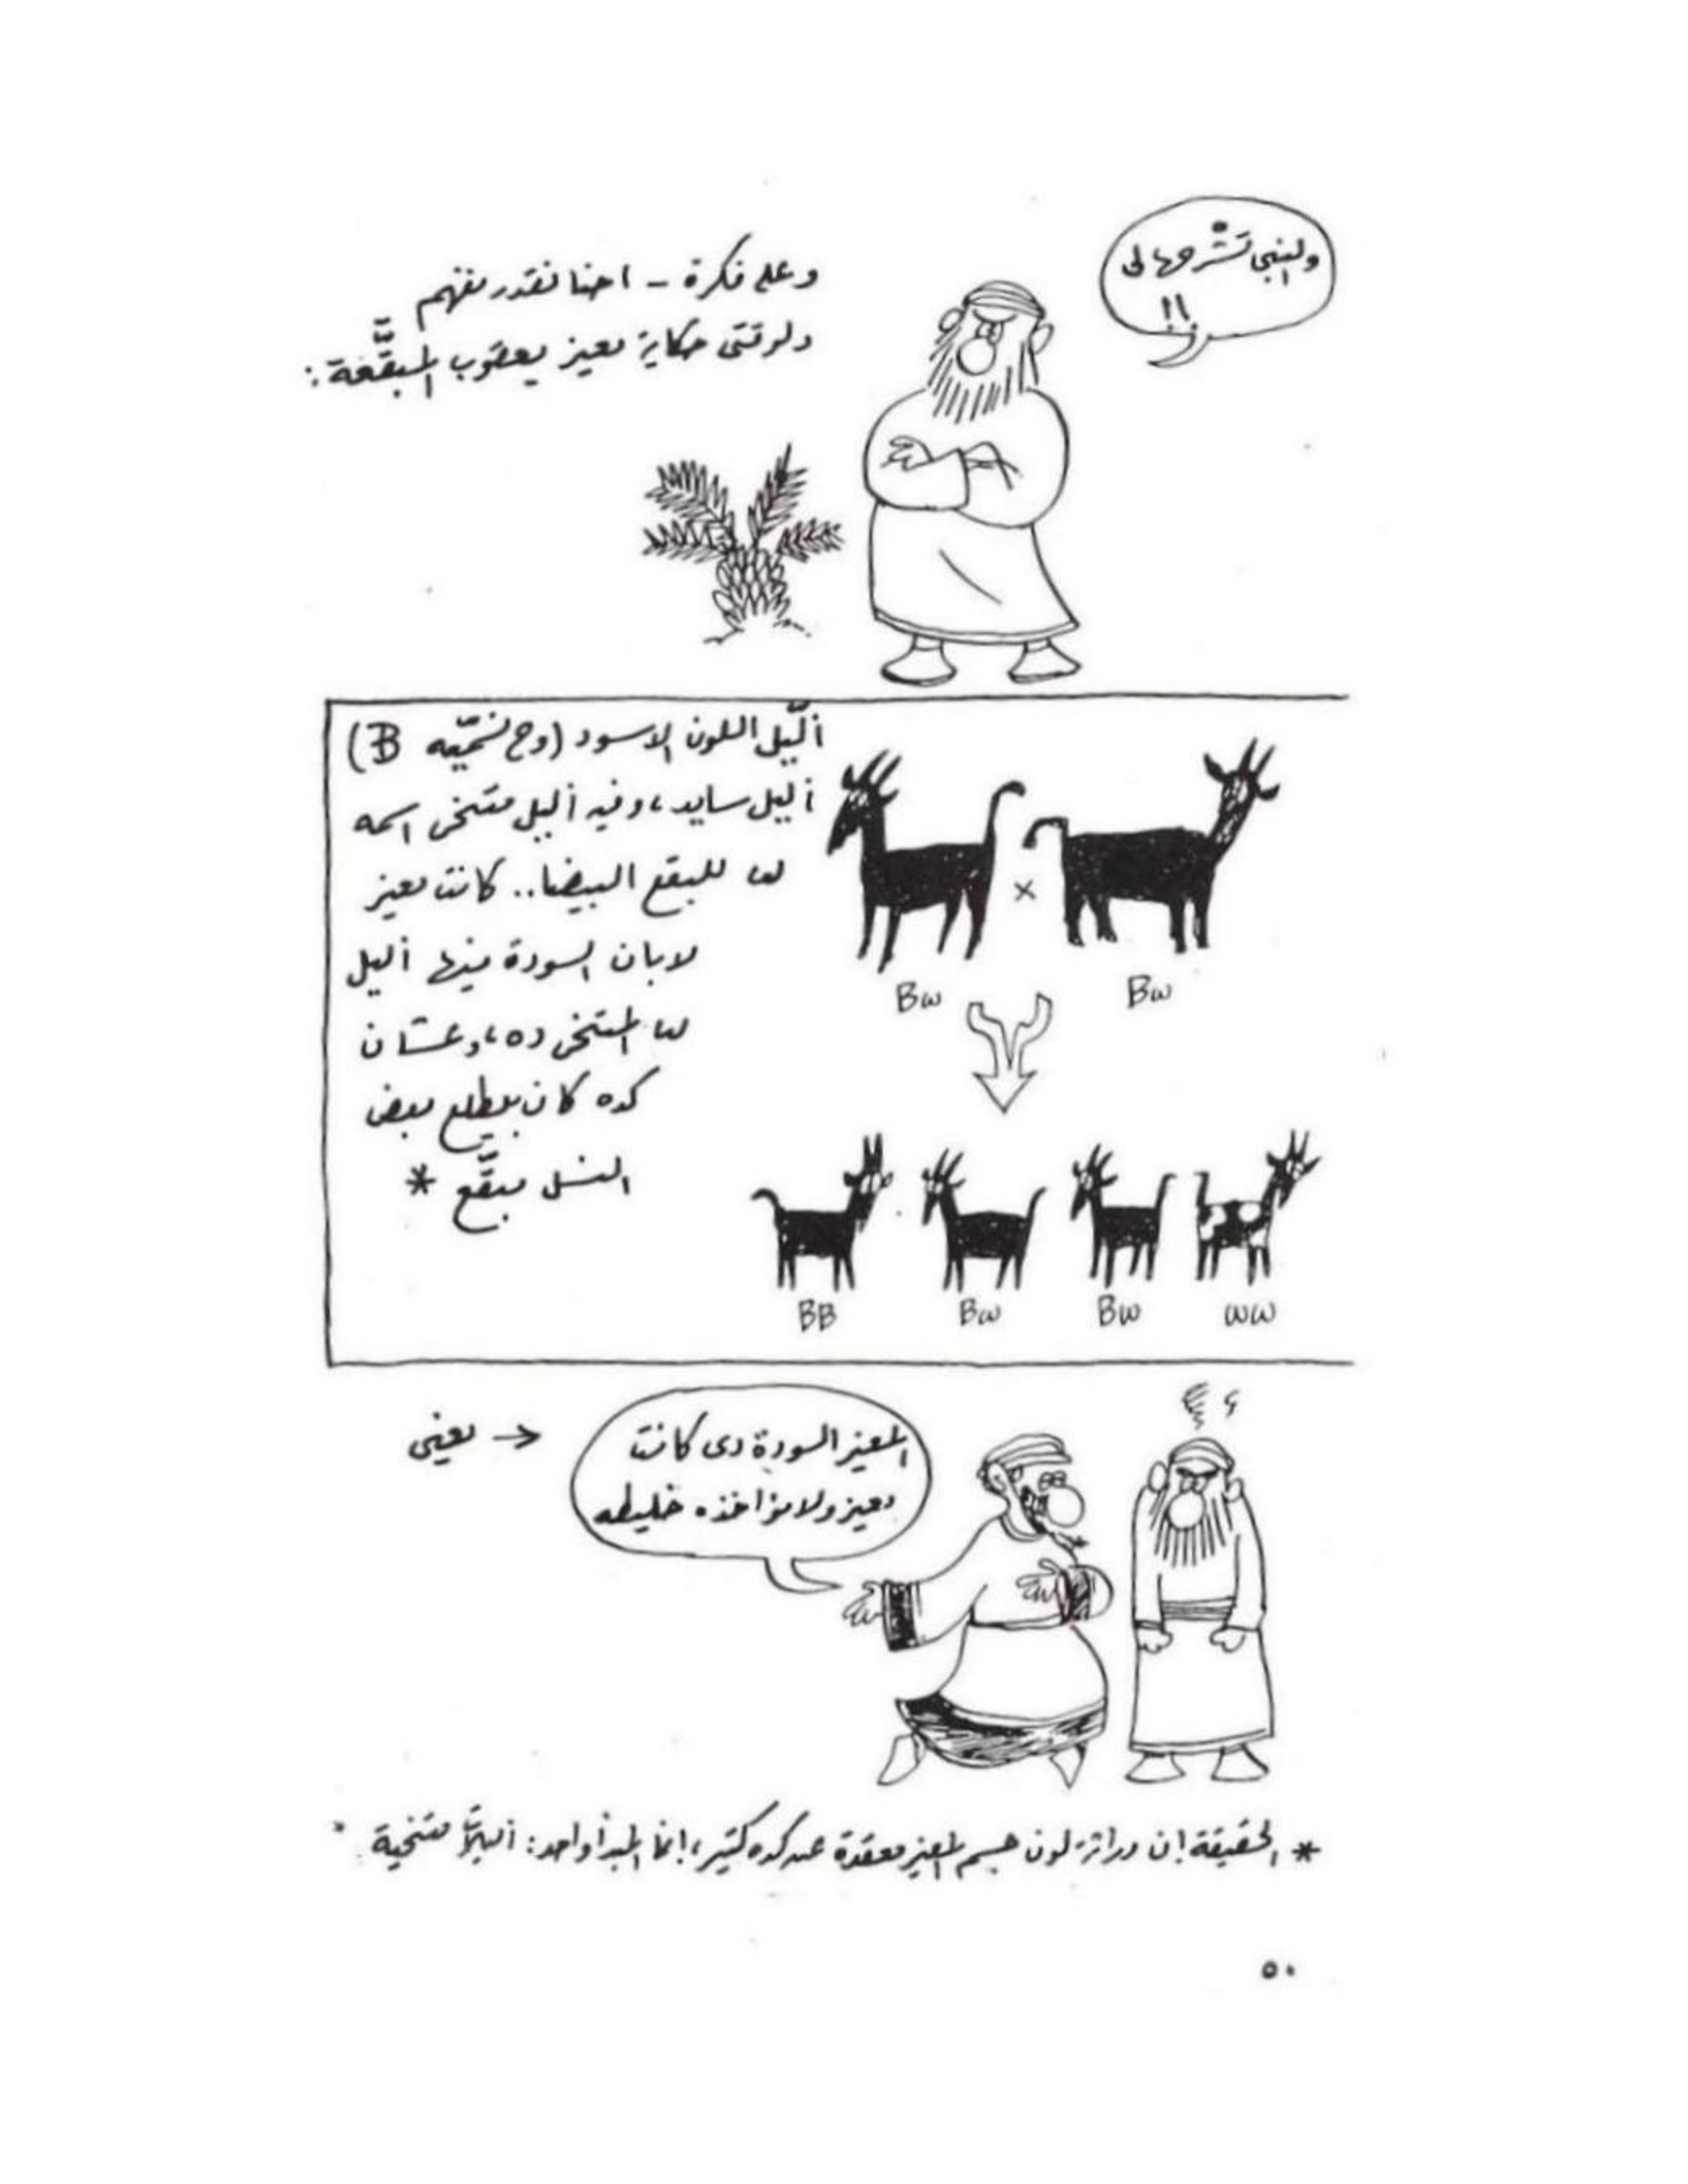 وعلى فكرة - احنا نقدر نفهم
دلوقتى حكاية معيز يعقوب المبقَّعة:
والنبى تشْرحها لى
!!
أليّل اللون الاسود (وح نسَمّيه B)
أليل سايد، وفيه أليل متنحى اسمه
w للبقع البيضا.. كانت معيز
لابان السودة فيها أليل
w المتنحى ده، وعشان
كده كان بيطلع بعض
النسل مبقَّع *
Bw × Bw
BB Bw Bw ww
يعنى →
المعيز السودة دى كانت
معيز ولا مؤاخذه خليطه
* الحقيقة إن وراثة لون جسم المعيز معقدة عن كده كتير، إنما المبدأ واحد: أليلاَّت متنحية *
٥٠